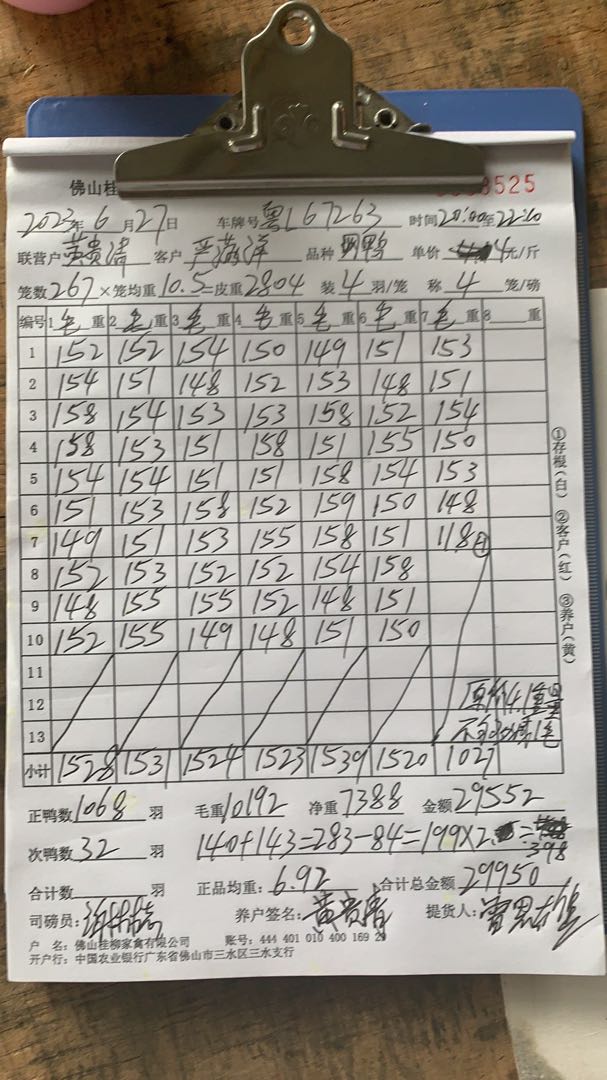 佛山桂
8525
2023年6月27日 车牌号粤L67263 时间20:00至22:10
联营户黄贵清 客户 严 洋 品种 鸭 单价 4元/斤
笼数267×笼均重10.5=皮重2804 装4羽/笼 称4笼/磅
编号 1毛重 2毛重 3毛重 4毛重 5毛重 6毛重 7毛重 8 重
1 152 152 154 150 149 151 153
2 154 151 148 152 153 148 151
3 158 154 153 153 158 152 154
4 158 153 151 158 151 155 150
5 154 154 151 151 158 154 153
6 151 153 158 152 159 150 148
7 149 151 153 155 158 151 118
8 152 153 152 152 154 158
9 148 155 155 152 148 151
10 152 155 149 148 151 150
11
12
13
小计 1528 1531 1524 1523 1539 1520 1027
正鸭数1068羽 毛重10192 净重7388 金额29552
次鸭数32羽 140+143=283-84=199×2=398
合计数 羽 正品均重:6.92 合计总金额29950
司磅员: 养户签名:黄贵清 提货人:
户 名:佛山桂柳家禽有限公司 账号:444 401 010 400 169 29
开户行:中国农业银行广东省佛山市三水区三水支行
①存根(白) ②客户(红) ③养户(黄)